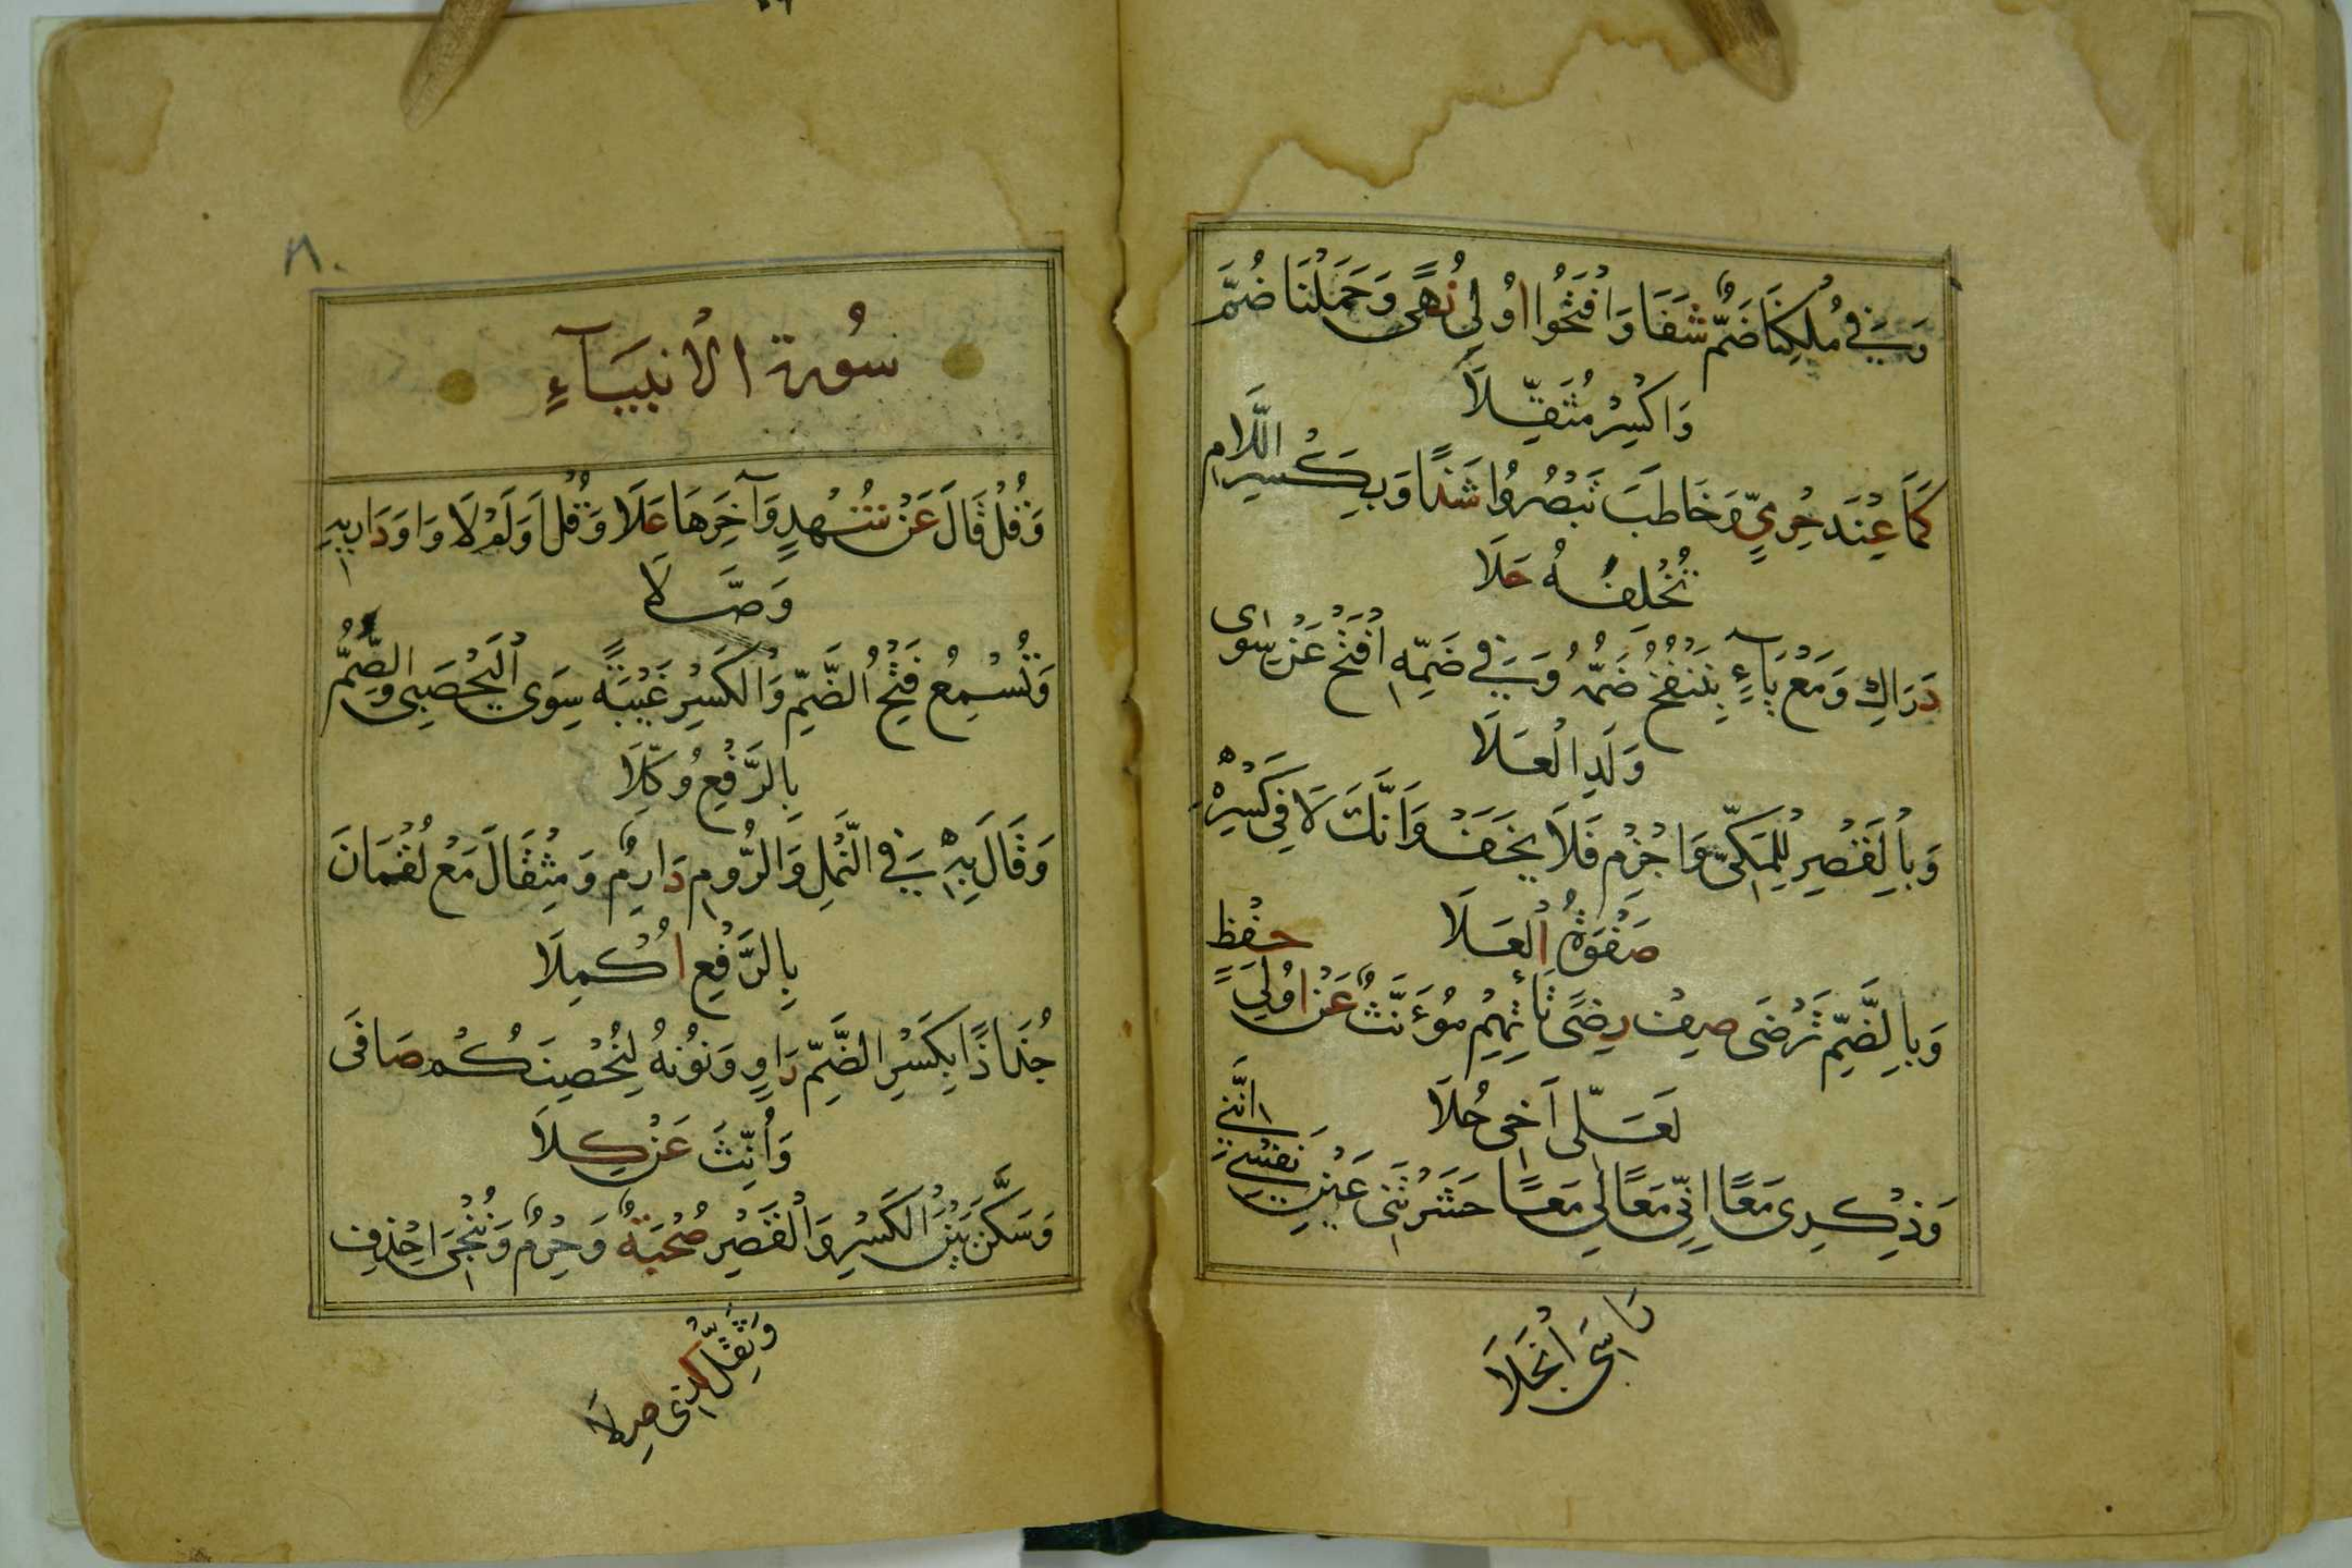 وَفِي مُلْكِنَا ضَمٌّ شَفَا وَافْتَحُوا اُولِي نُهًى وَحَمَلْنَا ضُمَّ
وَاكْسِرْ مُثَقِّلَا
كَمَا عِنْدَ حِرْمِيٍّ وَخَاطَبَ تَبْصُرُوا شَذًا وَبِكَسْرِ اللَّامِ
تُخْلِفَهُ حَلَا
دَرَاكِ وَمَعْ يَاءٍ بِنَنْفُخُ ضَمُّهُ وَفِي ضَمِّهِ افْتَحْ عَنْ سِوَى
وَلَدِ الْعَلَا
وَبِالْقَصْرِ لِلْمَكِّيِّ وَاجْزِمْ فَلَا يَخَفْ وَاَنَّكَ لَا فِي كَسْرِهِ
صَفْوَةُ الْعَلَا
وَبِالضَّمِّ تَرْضَى صِفْ رِضًى تَأْتِهِمْ مُؤَنَّثٌ عَنْ اُولِي حِفْظٍ
لَعَلِّى اَخِى حُلَا
وَذِكْرِى مَعًا اِنِّى مَعًا لِى مَعًا حَشَرْتَنِى عَيْنِ نَفْسِى اِنَّنِى
رَاسِىَ انْجَلَا
٨٠
سُورة الْأَنْبِيَآءِ
وَقُلْ قَالَ عَنْ شُهْدٍ وَآخِرَهَا عَلَا وَقُلْ اَوَلَمْ لَا وَاوَ دَارِيهِ
وَصَّلَا
وَتُسْمِعُ فَتْحُ الضَّمِّ وَالْكَسْرِ غَيْبَةً سِوَى الْيَحْصَبِى وَالصُّمُّ
بِالرَّفْعِ وُكِّلَا
وَقَالَ بِهِ فِي النَّمْلِ وَالرُّومِ دَارِمٌ وَمِثْقَالَ مَعْ لُقْمَانَ
بِالرَّفْعِ اُكْمِلَا
جُذَاذًا بِكَسْرِ الضَّمِّ رَاوٍ وَنُونُهُ لِيُحْصِنَكُمْ صَافَى
وَاُنِّثَ عَنْ كِلَا
وَسَكَّنَ بَيْنَ الْكَسْرِ وَالْقَصْرِ صُحْبَةٌ وَحِرْمٌ وَنُنْجِى احْذِفْ
وَثَقِّلْ كَذِى صِلَا